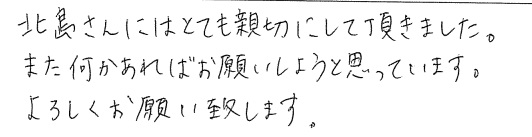 北島さんにはとても親切にして頂きました。
また何かあればお願いしようと思っています。
よろしくお願い致します。